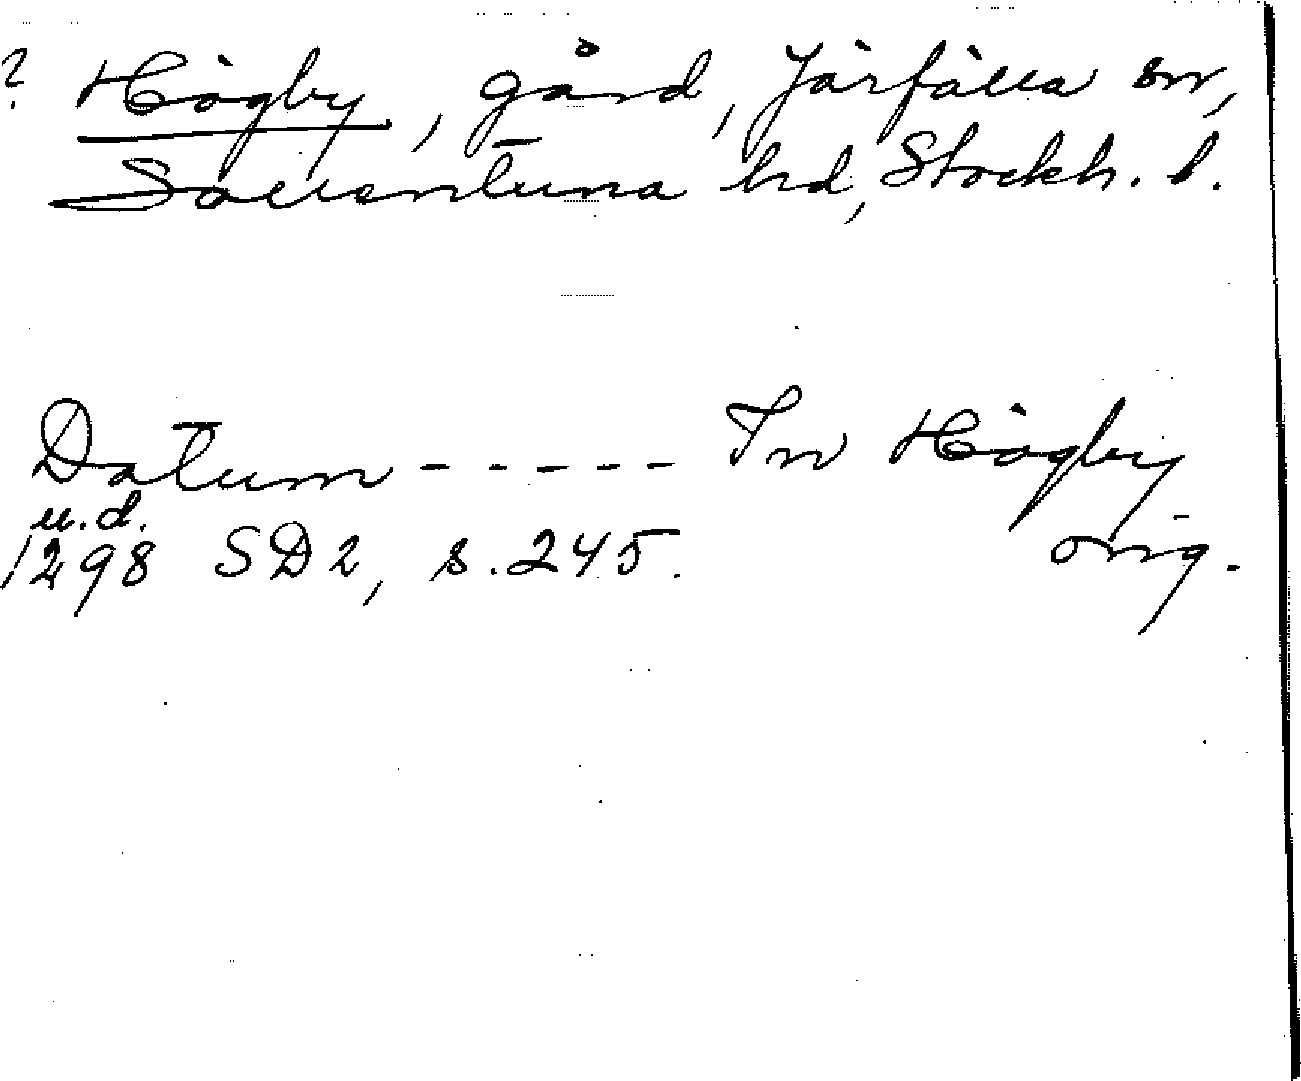 ? Högby, gård, Järfälla sn,
Sollentuna hd, Stockh. l.
Datum - - - - - In Högby
u.d.
1298 SD 2, s. 245. orig.